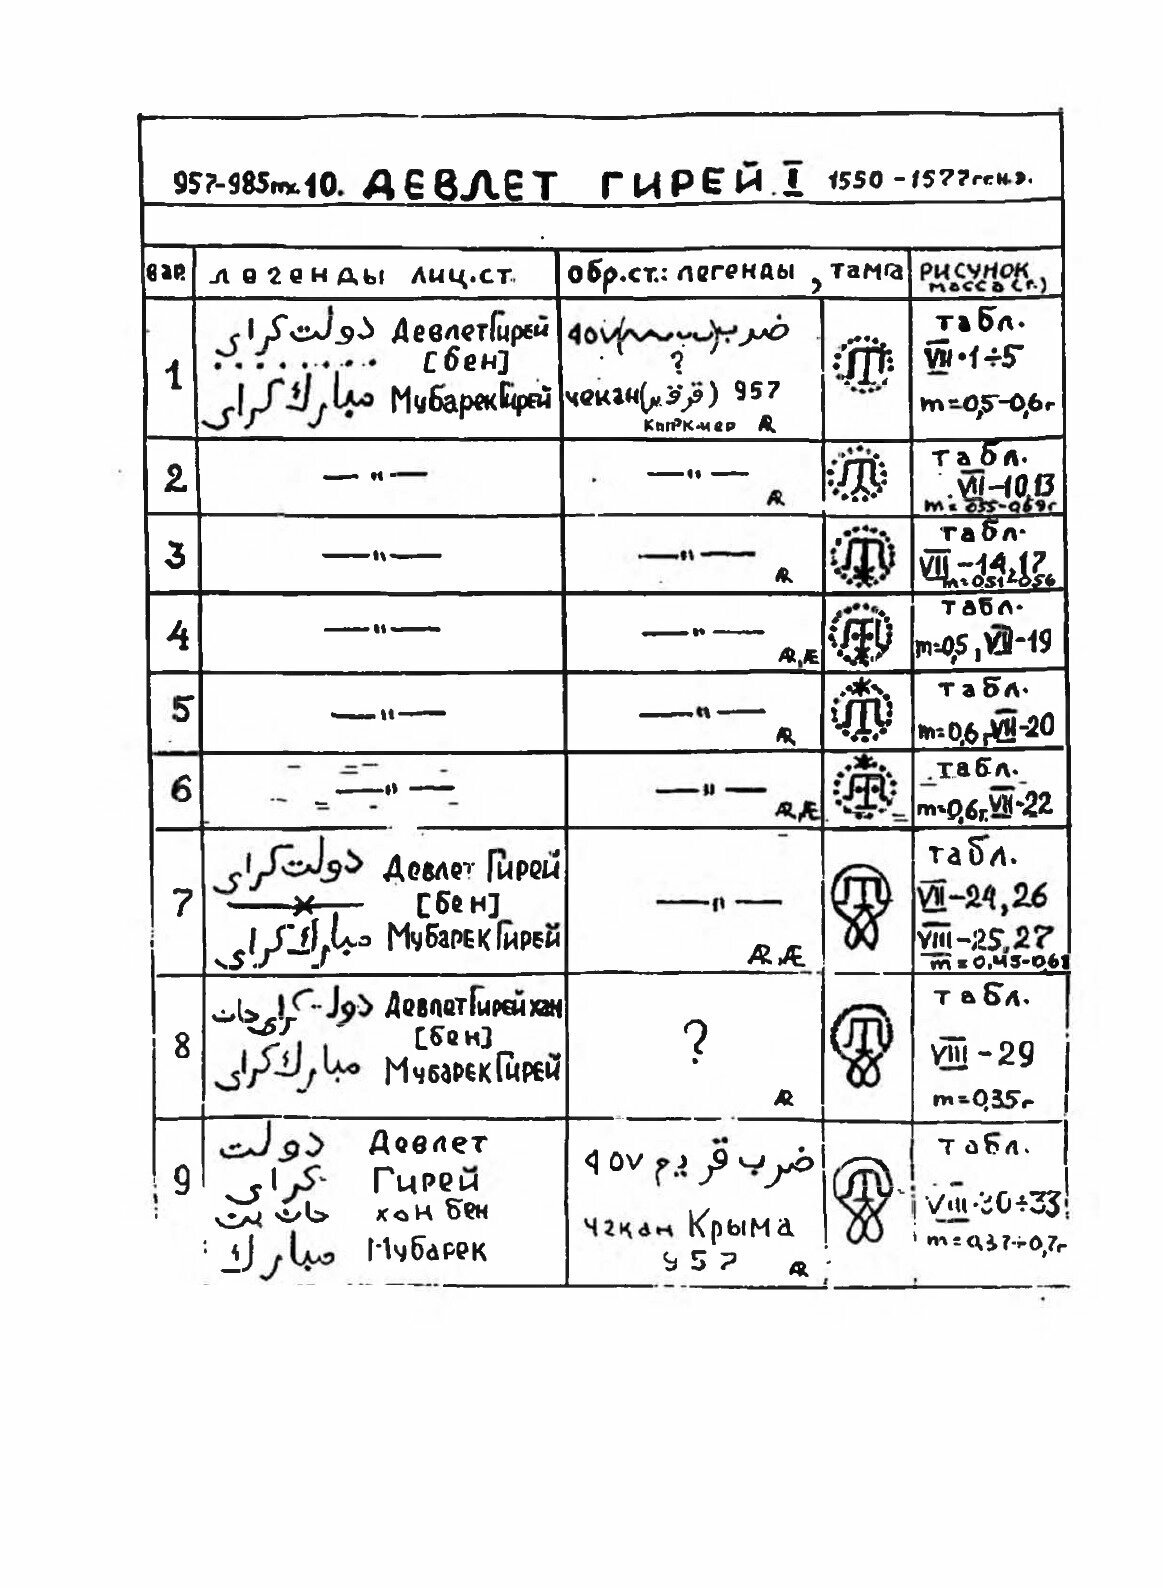 957-985гг.х. 10. ДЕВЛЕТ ГИРЕЙ I 1550-1577гг.н.э.
вар. легенды лиц.ст. обр.ст.: легенды, тамга рисунок масса (г.)
1
دولت كراى ДевлетГирей
[бен]
مبارك كراى МубарекГирей
ضرب ٩٥٧
?
чекан 957
AR
табл.
VII·1÷5
m=0,5-0,6г
2 —"— —"—
AR
табл.
VII-10,13
m=0,55-0,69г
3 —"— —"—
AR
табл.
VII-14,17
m=0,51-0,56
4 —"— —"—
AR, Æ
табл.
m=0,5, VII-19
5 —"— —"—
AR
табл.
m=0,6г VII-20
6 —"— —"—
AR, Æ
табл.
m=0,6г. VII-22
7
دولت كراى Девлет Гирей
[бен]
مبارك كراى МубарекГирей
—"—
AR, Æ
табл.
VII-24,26
VIII-25,27
m=0,45-0,68
8
دولت كراى خان ДевлетГирей хан
[бен]
مبارك كراى МубарекГирей
?
AR
табл.
VIII-29
m=0,35г
9
دولت Девлет
كراى Гирей
خان بن хан бен
مبارك Мубарек
ضرب قريم ٩٥٧
чекан Крыма
957
AR
табл.
VIII·30÷33
m=0,37÷0,7г